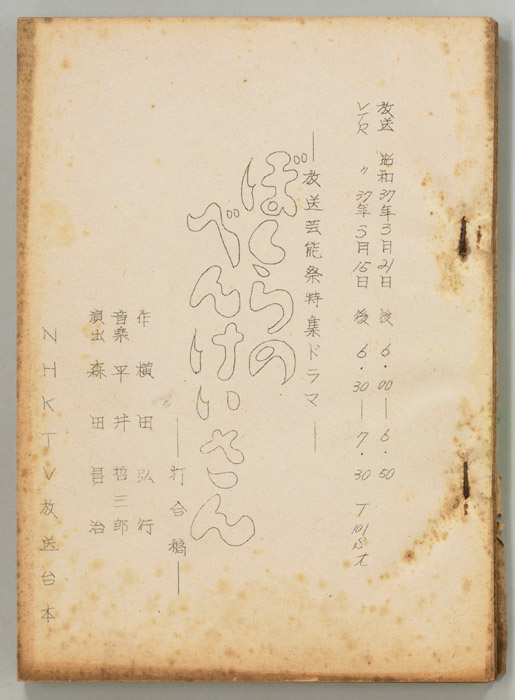 放送 昭和37年3月21日 後 6.00—6.50
VTR 〃 37年3月15日 後 6.30—7.30 T101St
—放送芸能祭特集ドラマ—
ぼくらの
べんけいさん
—打合稿—
作 横田弘行
音楽 平井哲三郎
演出 森田昌治
NHKTV放送台本